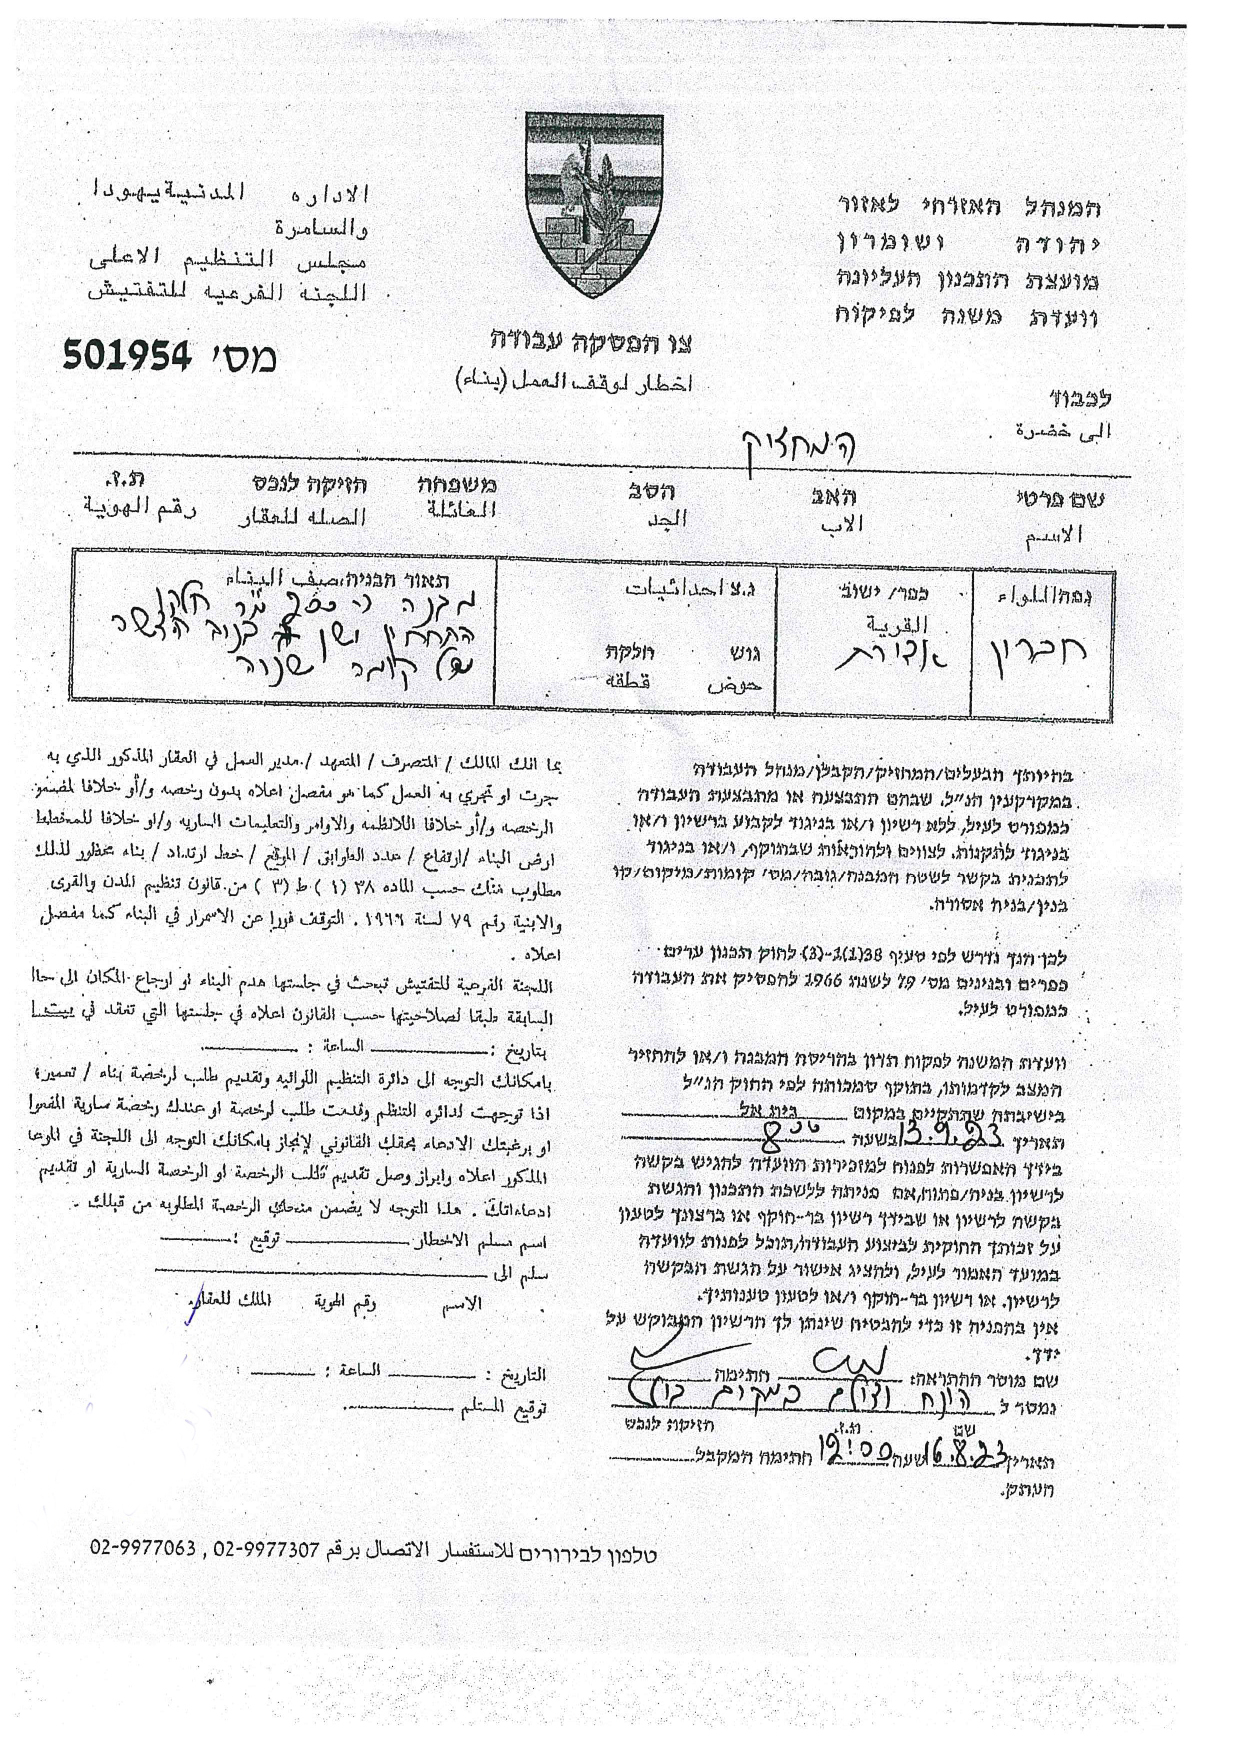 המנהל האזרחי לאזור
יהודה ושומרון
מועצת התכנון העליונה
וועדת משנה לפיקוח
الاداره المدنية يهودا
والسامرة
مجلس التنظيم الاعلى
اللجنه الفرعيه للتفتيش
מס' 501954
צו הפסקה עבודה
اخطار لوقف العمل (بناء)
לכבוד
الى حضرة
המחזיק
שם פרטי האב הסב משפחה חזיקה לנכס ת.ז.
الاسم الاب الجد العائلة الصله للعقار رقم الهوية
נפה اللواء
חברון
כפר/ ישוב
القرية
נ.צ احداثيات
גוש חלקה
حوض قطعه
תאור הבניה: صيف البناء
מבנה
ישן
קומה שנוה
בהיותך הבעלים/המחזיק/הקבלן/מנהל העבודה
במקרקעין הנ"ל, שבהם התבצעה או מתבצעת העבודה
כמפורט לעיל, ללא רשיון ו/או בניגוד לקבוע ברשיון ו/או
בניגוד לתקנות, לצווים ולהוראות שבתוקף, ו/או בניגוד
לתכנית בקשר לשטח המבנה/גובה/מס' קומות/מיקום/קו
בנין/בניה אסורה.
לכן הנך נדרש לפי סעיף 38(1)-(3) לחוק תכנון ערים
כפרים ובנינים מס' 79 לשנת 1966 להפסיק את העבודה
כמפורט לעיל.
וועדת המשנה לפקוח תדון בהריסת המבנה ו/או להחזיר
המצב לקדמותו, בתוקף סמכותה לפי החוק הנ"ל
בישיבתה שתתקיים במקום בית אל
תאריך 13.9.23 בשעה 8
בידך האפשרות לפנות למזכירות הוועדה להגיש בקשה
לרשיון בניה/פתוח, אם פניתה ללשכת התכנון והגשת
בקשה לרשיון או שבידך רשיון בר-תוקף או ברצונך לטעון
על זכותך החוקית לביצוע העבודה, תוכל לפנות לוועדה
במועד האמור לעיל, ולהציג אישור על הגשת הבקשה
לרשיון. או רשיון בר-תוקף ו/או לטעון טענותיך.
אין בהפניה זו כדי להבטיח שינתן לך הרשיון המבוקש על
ידך.
שם מוסר ההתראה: חתימה
נמסר ל הונח וצולם במקום
שם ת.ז. חזיקה לנכס
תאריך 16.8.23 שעה 12:00 חתימה המקבל
העתק.
بما انك المالك / المتصرف / المتعهد / مدير العمل في العقار المذكور الذي به
جرت او تجري به العمل كما هو مفصل اعلاه بدون رخصه و/أو خلافا لمضمو
الرخصه و/أو خلافا اللانظمه والاوامر والتعليمات الساريه و/او خلافا للمخطط
ارض البناء /ارتفاع / عدد الطوابق / الموقع / خط ارتداد / بناء محظور لذلك
مطلوب منك حسب الماده ٣٨ (١) ط (٣) من قانون تنظيم المدن والقرى
والابنية رقم ٧٩ لسنة ١٩٦٦ . التوقف فورا عن الاسمرار في البناء كما مفصل
اعلاه .
اللجنة الفرعية للتفتيش تبحث في جلستها هدم البناء او ارجاع المكان الى حالا
السابقة طبقا لصلاحيتها حسب القانون اعلاه في جلستها التي تعقد في بيت ا
بتاريخ : الساعة :
بامكانك التوجه الى دائرة التنظيم اللوائيه وتقديم طلب لرخصة بناء / تعمير؛
اذا توجهت لدائره التنظم وقدمت طلب لرخصة او عندك رخصة سارية المفعوا
او برغبتك الادعاء بحقك القانوني لإنجاز بامكانك التوجه الى اللجنة في الموعا
المذكور اعلاه وابراز وصل تقديم طلب الرخصة او الرخصة السارية او تقديم
ادعاءاتك . هذا التوجه لا يضمن منحك الرخصة المطلوبه من قبلك .
اسم مسلم الاخطار توقيع :
سلم الى
الاسم رقم الهوية المالك للعقار
التاريخ : الساعة :
توقيع المستلم
טלפון לבירורים للاستفسار الاتصال برقم 02-9977307 , 02-9977063